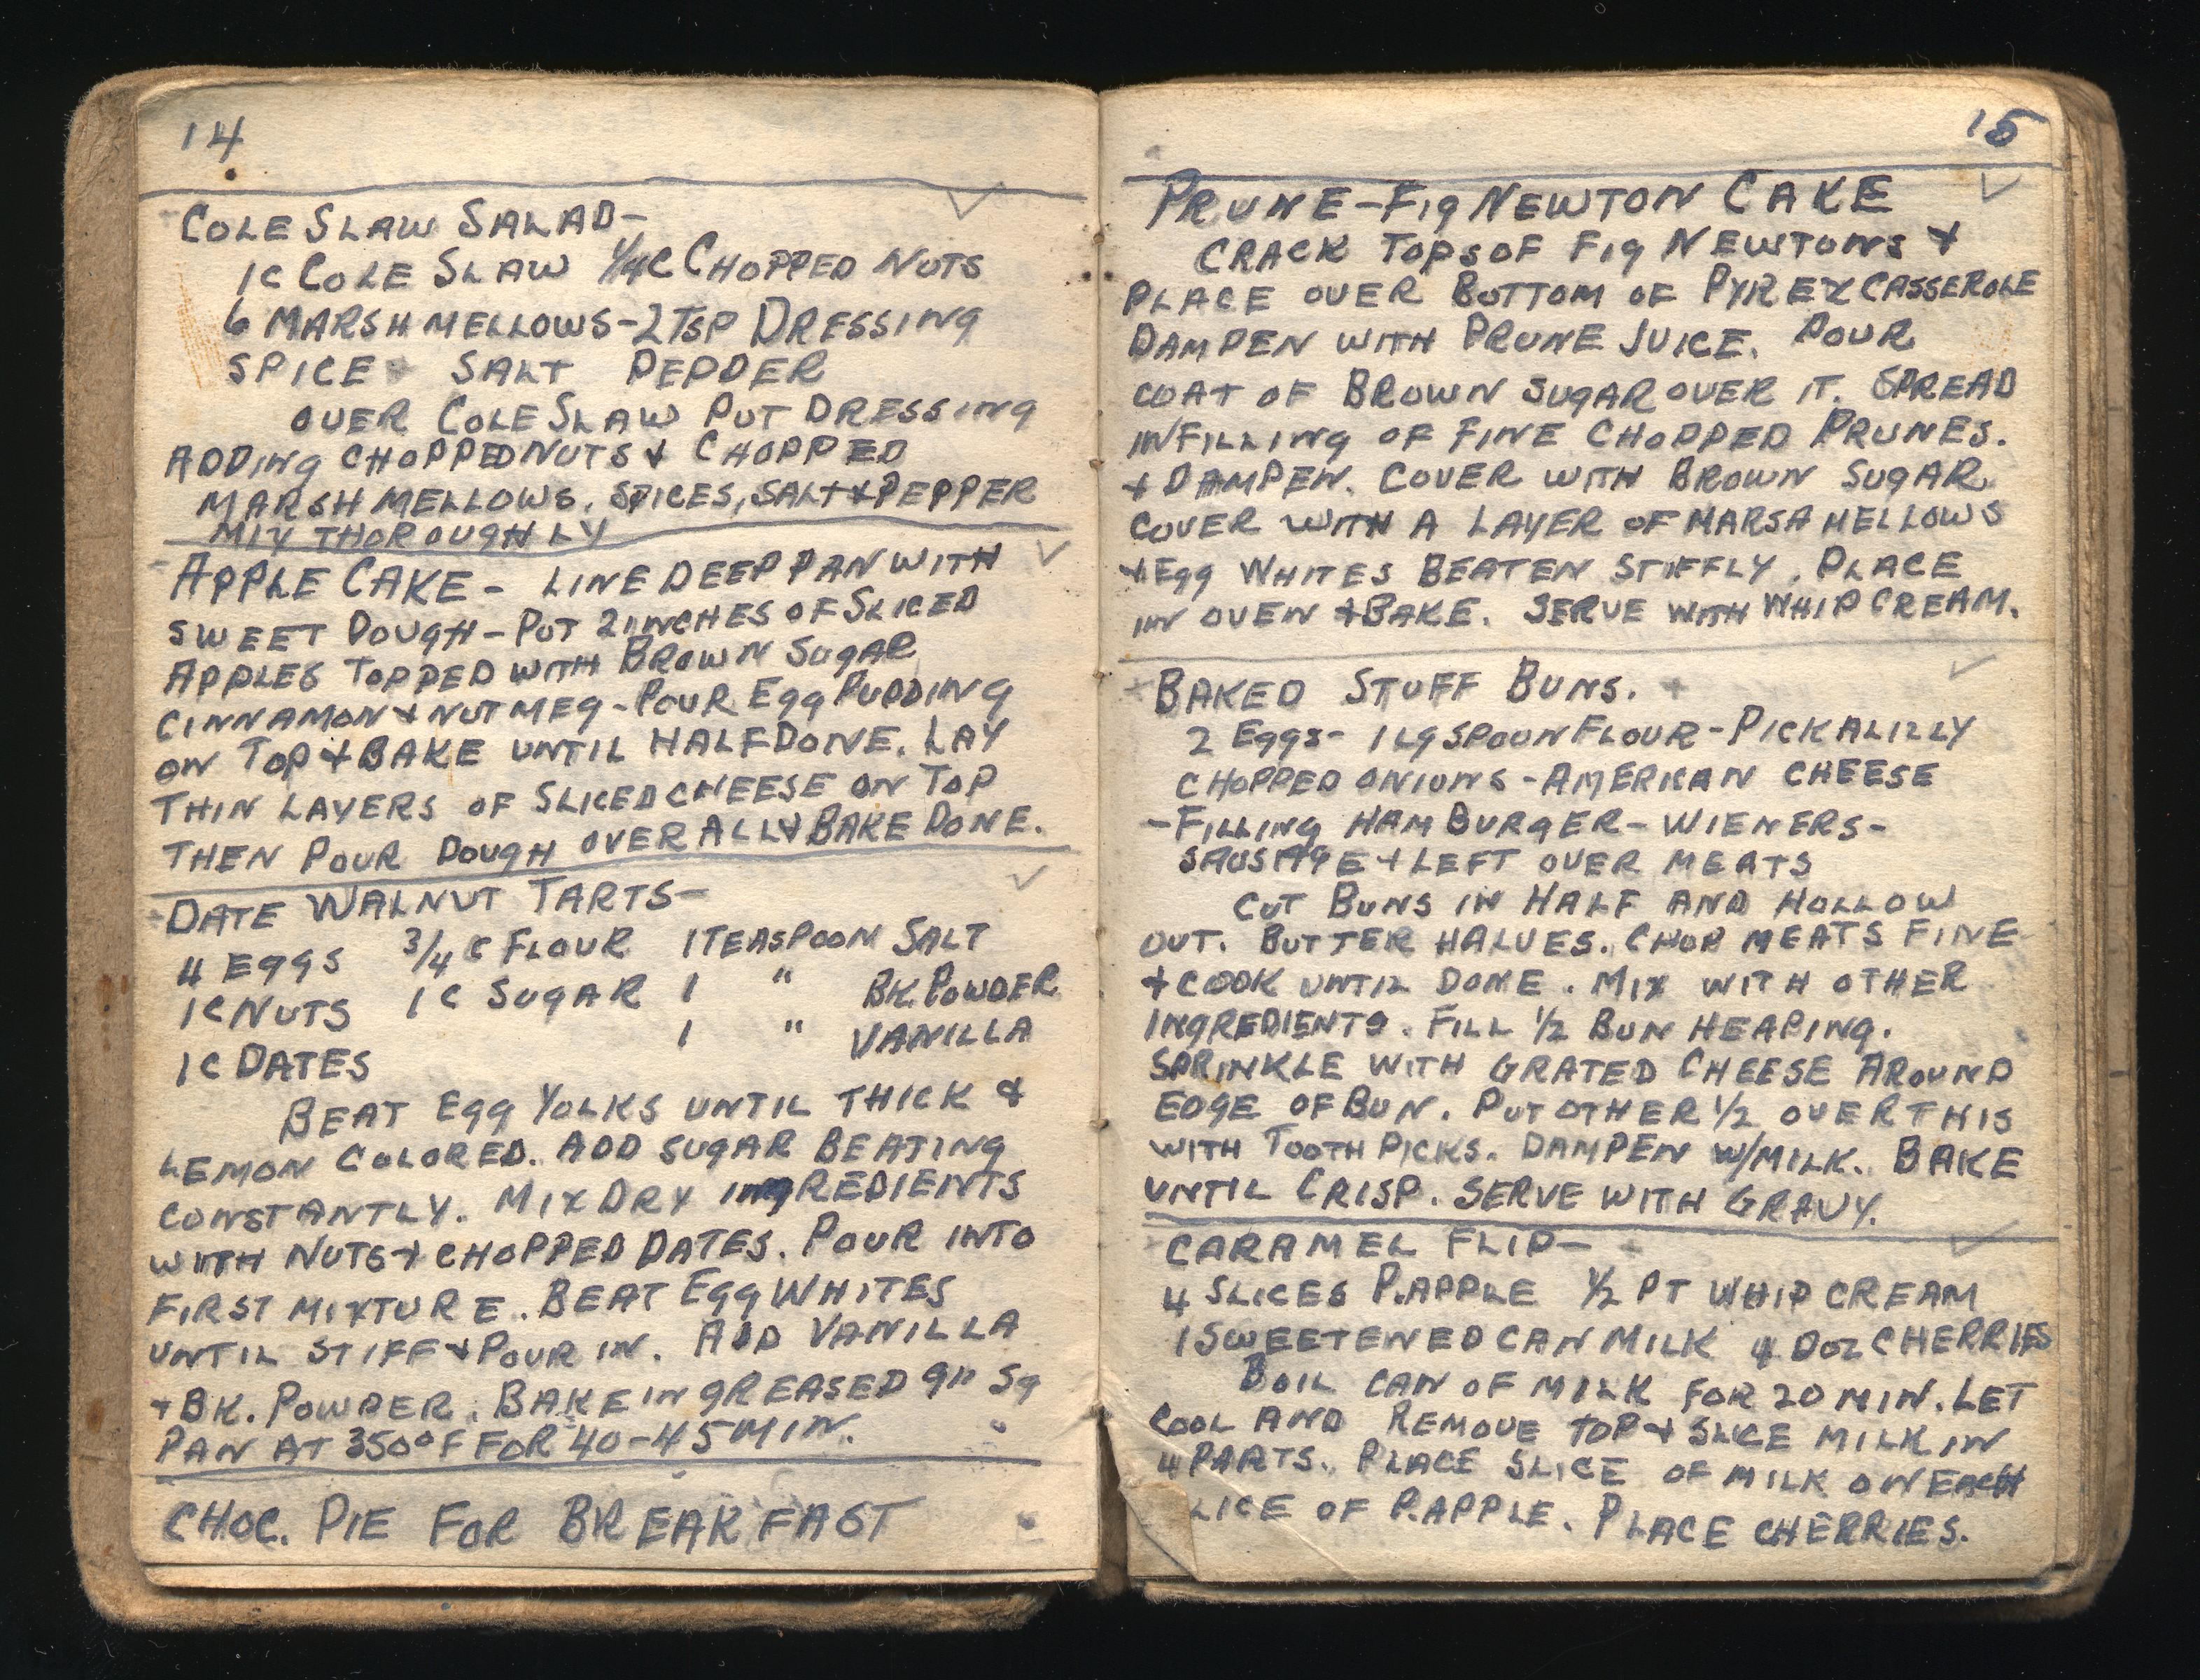 14
COLE SLAW SALAD-
1C COLE SLAW 1/4C CHOPPED NUTS
6 MARSHMELLOWS-2 TSP DRESSING
SPICE SALT PEPPER
OVER COLE SLAW PUT DRESSING
ADDING CHOPPED NUTS & CHOPPED
MARSHMELLOWS, SPICES, SALT & PEPPER
MIX THOROUGHLY
APPLE CAKE - LINE DEEP PAN WITH
SWEET DOUGH - PUT 2 INCHES OF SLICED
APPLES TOPPED WITH BROWN SUGAR
CINNAMON & NUTMEG - POUR EGG PUDDING
ON TOP & BAKE UNTIL HALF DONE. LAY
THIN LAYERS OF SLICED CHEESE ON TOP
THEN POUR DOUGH OVER ALL & BAKE DONE.
DATE WALNUT TARTS-
4 EGGS 3/4 C FLOUR 1 TEASPOON SALT
1C NUTS 1C SUGAR 1 " BK. POWDER
1 " VANILLA
1C DATES
BEAT EGG YOLKS UNTIL THICK &
LEMON COLORED. ADD SUGAR BEATING
CONSTANTLY. MIX DRY INGREDIENTS
WITH NUTS & CHOPPED DATES. POUR INTO
FIRST MIXTURE. BEAT EGG WHITES
UNTIL STIFF & POUR IN. ADD VANILLA
& BK. POWDER. BAKE IN GREASED 9" SQ
PAN AT 350°F FOR 40-45 MIN.
CHOC. PIE FOR BREAKFAST
15
PRUNE-FIG NEWTON CAKE
CRACK TOPS OF FIG NEWTONS &
PLACE OVER BOTTOM OF PYREX CASSEROLE
DAMPEN WITH PRUNE JUICE. POUR
COAT OF BROWN SUGAR OVER IT. SPREAD
IN FILLING OF FINE CHOPPED PRUNES.
& DAMPEN. COVER WITH BROWN SUGAR
COVER WITH A LAYER OF MARSHMELLOWS
& EGG WHITES BEATEN STIFFLY. PLACE
IN OVEN & BAKE. SERVE WITH WHIP CREAM.
BAKED STUFF BUNS.
2 EGGS - 1 LG SPOON FLOUR - PICKALILLY
CHOPPED ONIONS - AMERICAN CHEESE
-FILLING HAMBURGER - WIENERS-
SAUSAGE & LEFT OVER MEATS
CUT BUNS IN HALF AND HOLLOW
OUT. BUTTER HALVES. CHOP MEATS FINE
& COOK UNTIL DONE. MIX WITH OTHER
INGREDIENTS. FILL 1/2 BUN HEAPING.
SPRINKLE WITH GRATED CHEESE AROUND
EDGE OF BUN. PUT OTHER 1/2 OVER THIS
WITH TOOTH PICKS. DAMPEN W/MILK. BAKE
UNTIL CRISP. SERVE WITH GRAVY.
CARAMEL FLIP-
4 SLICES P.APPLE 1/2 PT WHIP CREAM
1 SWEETENED CAN MILK 4 DOZ CHERRIES
BOIL CAN OF MILK FOR 20 MIN. LET
COOL AND REMOVE TOP & SLICE MILK IN
4 PARTS. PLACE SLICE OF MILK ON EACH
LICE OF P.APPLE. PLACE CHERRIES.